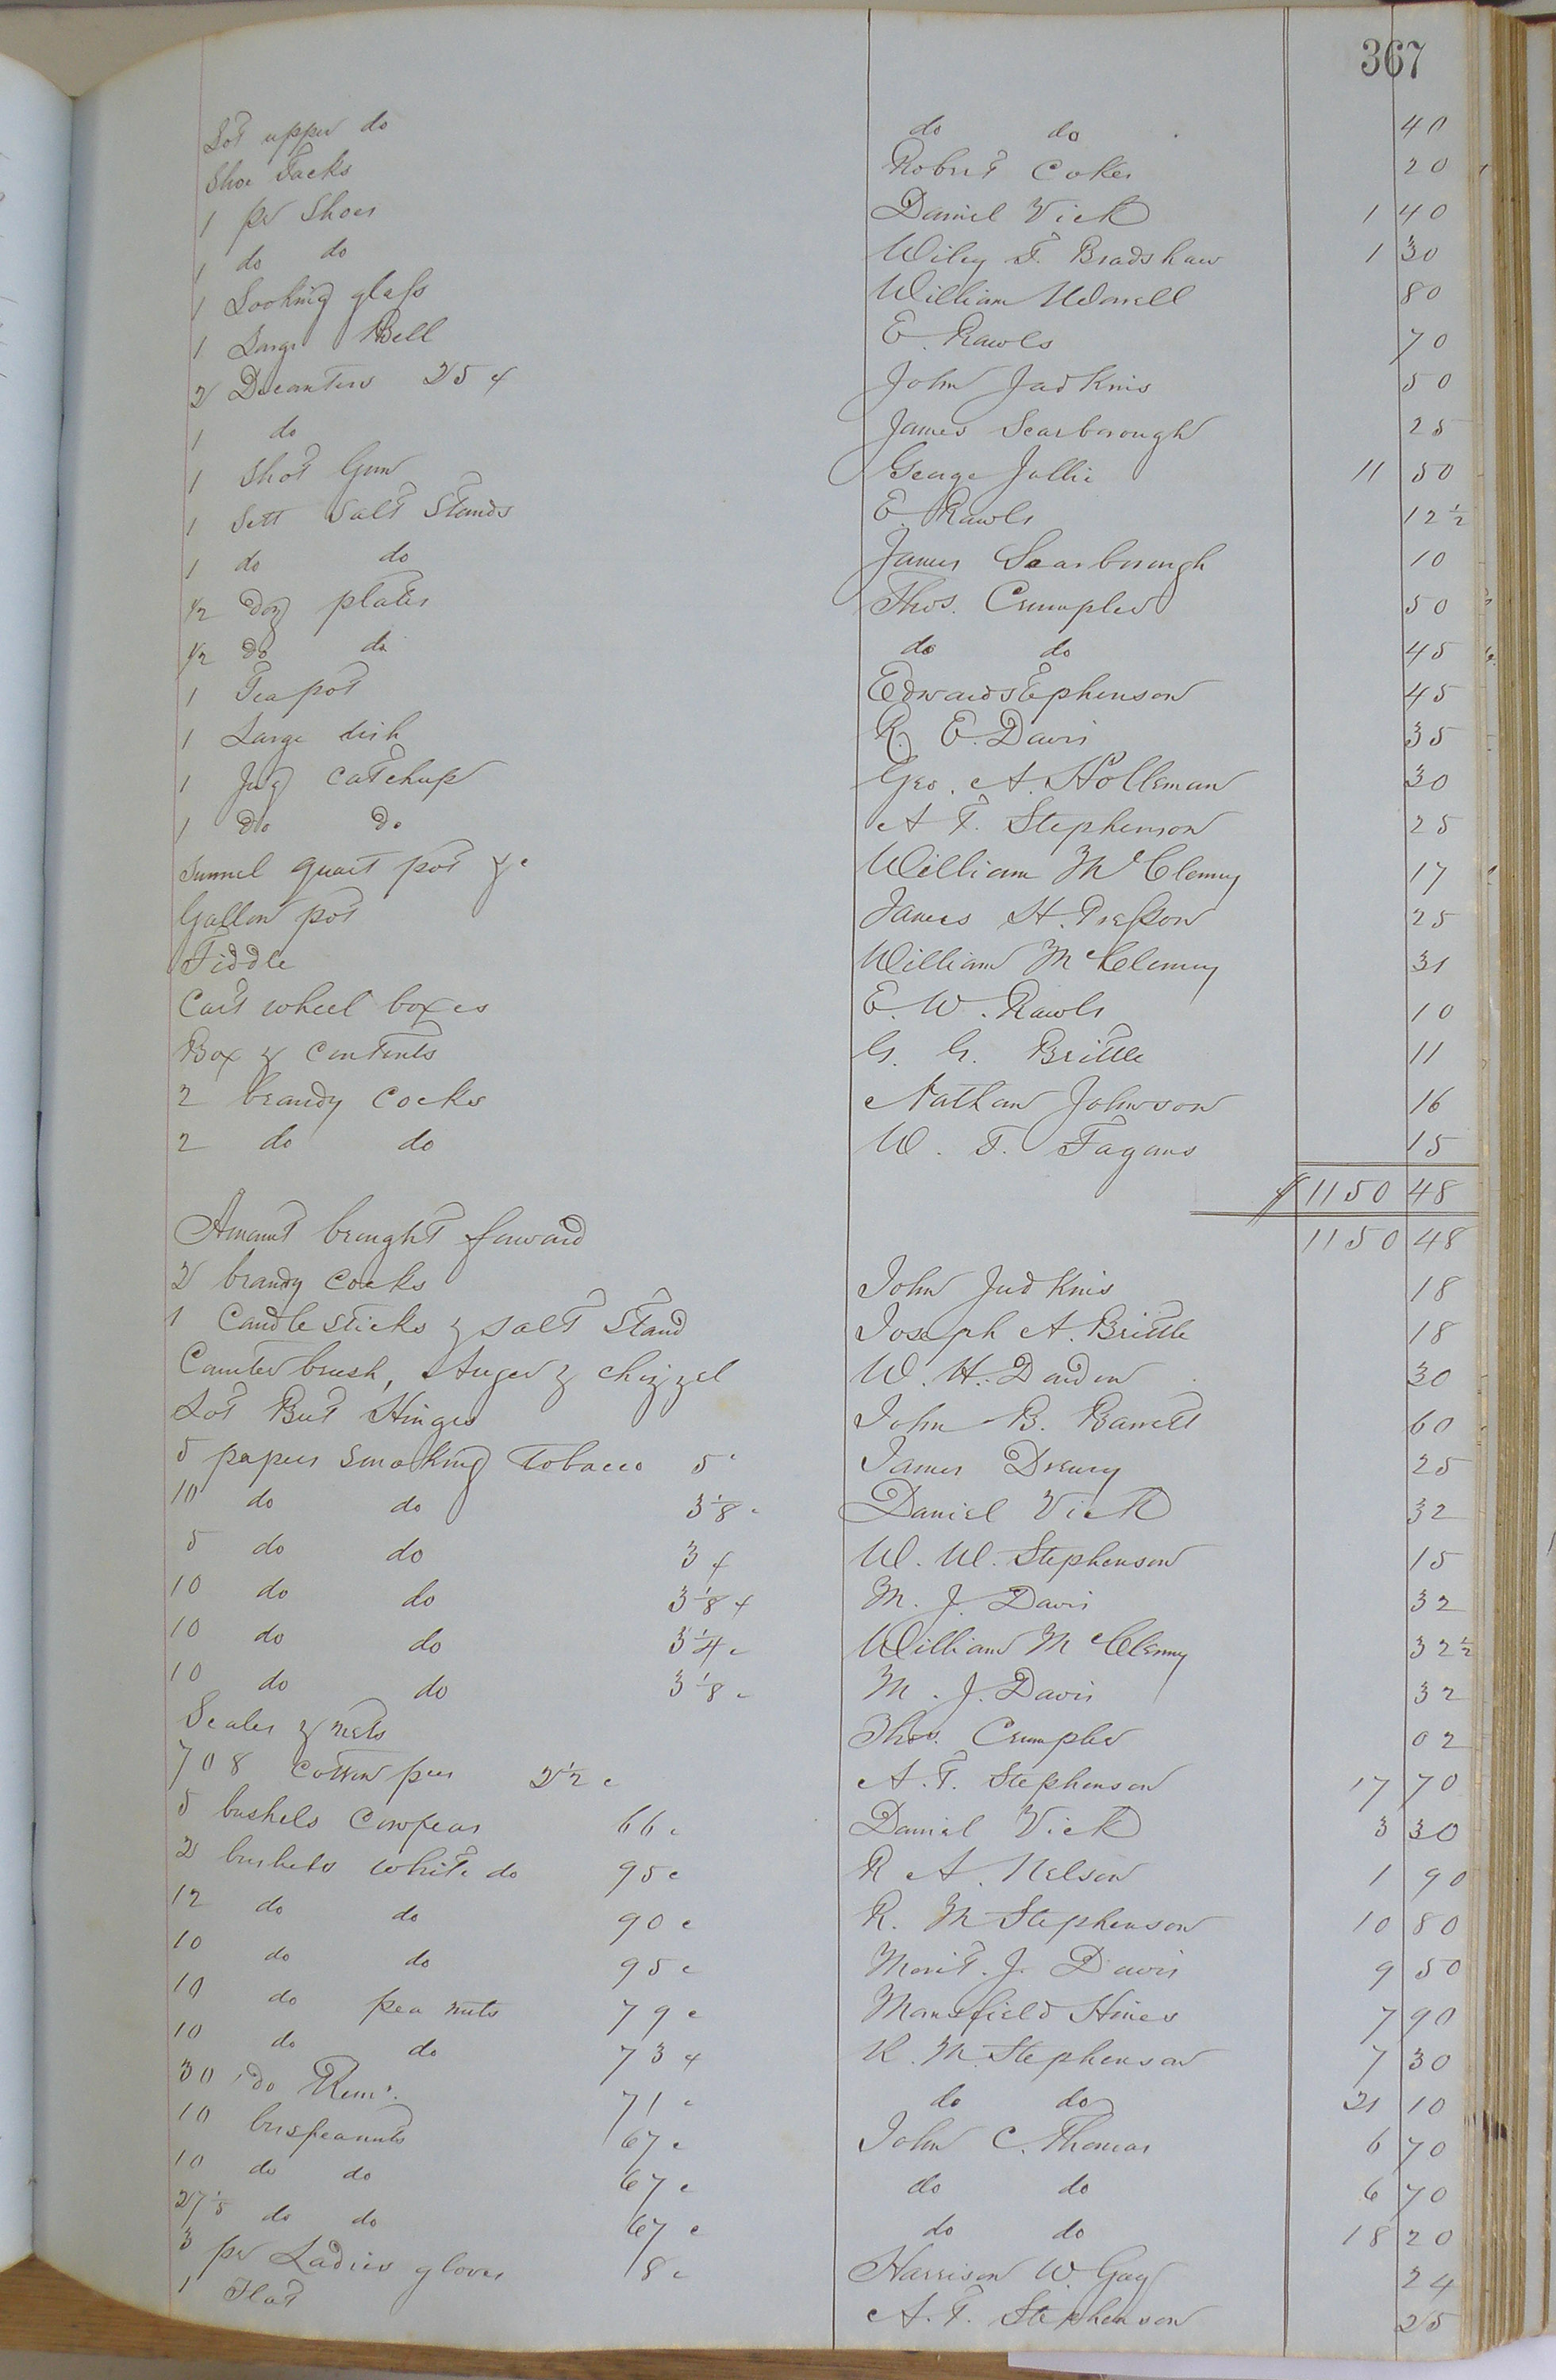 367
Lot upper do do do 40
Shoe Tacks Robert Coker 20
1 pr Shoes Daniel Vick 1 40
1 do do Wiley F. Bradshaw 1 30
1 Looking glass William Worrell 80
1 Large Bell E. Rawls 70
2 Decanters 25 ¢ John Judkins 50
1 do James Scarborough 25
1 Shot Gun George Jollie 11 50
1 Sett Salt Stands E. Rawls 12 1/2
1 do do James Scarborough 10
1/2 Doz plates Thos. Crumpler 50
1/2 do do do do 45
1 Teapot Edward Stephenson 45
1 Large dish R. E. Davis 35
1 Jug Catchup Geo. A. Holleman 30
1 Do Do A T. Stephenson 25
Funnel quart pot &c William McClenny 17
Gallon pot James H. Presson 25
Fiddle William McClenny 31
Cart wheel boxes E. W. Rawls 10
Box & Contents G. G. Brittle 11
2 brandy Cocks Nathan Johnson 16
2 do do W. T. Fagans 15
$ 1150 48
Amount brought forward 1150 48
2 brandy Cocks John Judkins 18
1 Candlesticks & Salt Stand Joseph A. Brittle 18
Counter brush, Auger & chizzel W. H. Darden 30
Lot But Hinges John B. Barrett 60
5 papers Smoking Tobacco 5 c James Drewry 25
10 do do 3 1/8 c Daniel Vick 32
5 do do 3 ¢ W. W. Stephenson 15
10 do do 3 1/8 ¢ M. J. Davis 32
10 do do 3 1/4 c William McClenny 32 1/2
10 do do 3 1/8 c M. J. Davis 32
Scales & nets Thos. Crumpler 02
708 Cotton per 2 1/2 c A. T. Stephenson 17 70
5 bushels Cowpeas 66 c Daniel Vick 3 30
2 bushels white do 95 c R A. Nelson 1 90
12 do do 90 c R. M Stephenson 10 80
10 do do 95 c Merit. J. Davis 9 50
10 do pea nuts 79 c Mansfield Hines 7 90
10 do do 73 ¢ R. M. Stephenson 7 30
30 do Rem. 71 c do do 21 10
10 bus peanuts 67 c John C. Thomas 6 70
10 do do 67 c do do 6 70
27 1/5 do do 67 c do do 18 20
3 pr Ladies gloves 8 c Harrison W. Gay 24
1 Hat A. T. Stephenson 25